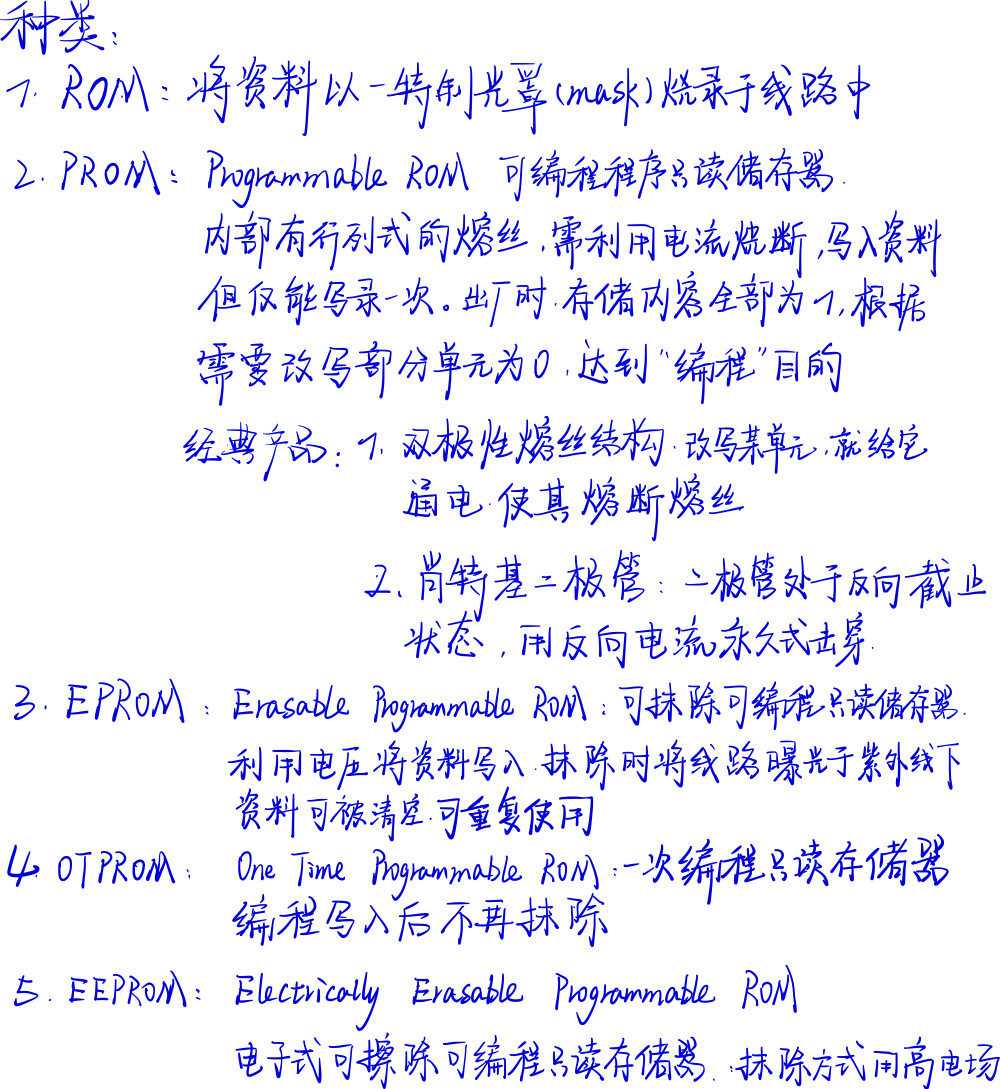 种类：
1. ROM：将资料以一特制光罩(mask)烧录于线路中
2. PROM：Programmable ROM 可编程程序只读储存器.
内部有行列式的熔丝，需利用电流烧断，写入资料
但仅能写录一次。出厂时，存储内容全部为1，根据
需要改写部分单元为0，达到“编程”目的
经典产品：1. 双极性熔丝结构．改写某单元，就给它
通电．使其熔断熔丝
2. 肖特基二极管：二极管处于反向截止
状态，用反向电流永久式击穿.
3. EPROM：Erasable Programmable ROM：可抹除可编程只读储存器.
利用电压将资料写入．抹除时将线路曝光于紫外线下
资料可被清空．可重复使用
4. OTPROM：One Time Programmable ROM：一次编程只读存储器
编程写入后不再抹除
5. EEPROM：Electrically Erasable Programmable ROM
电子式可擦除可编程只读存储器．：抹除方式用高电场